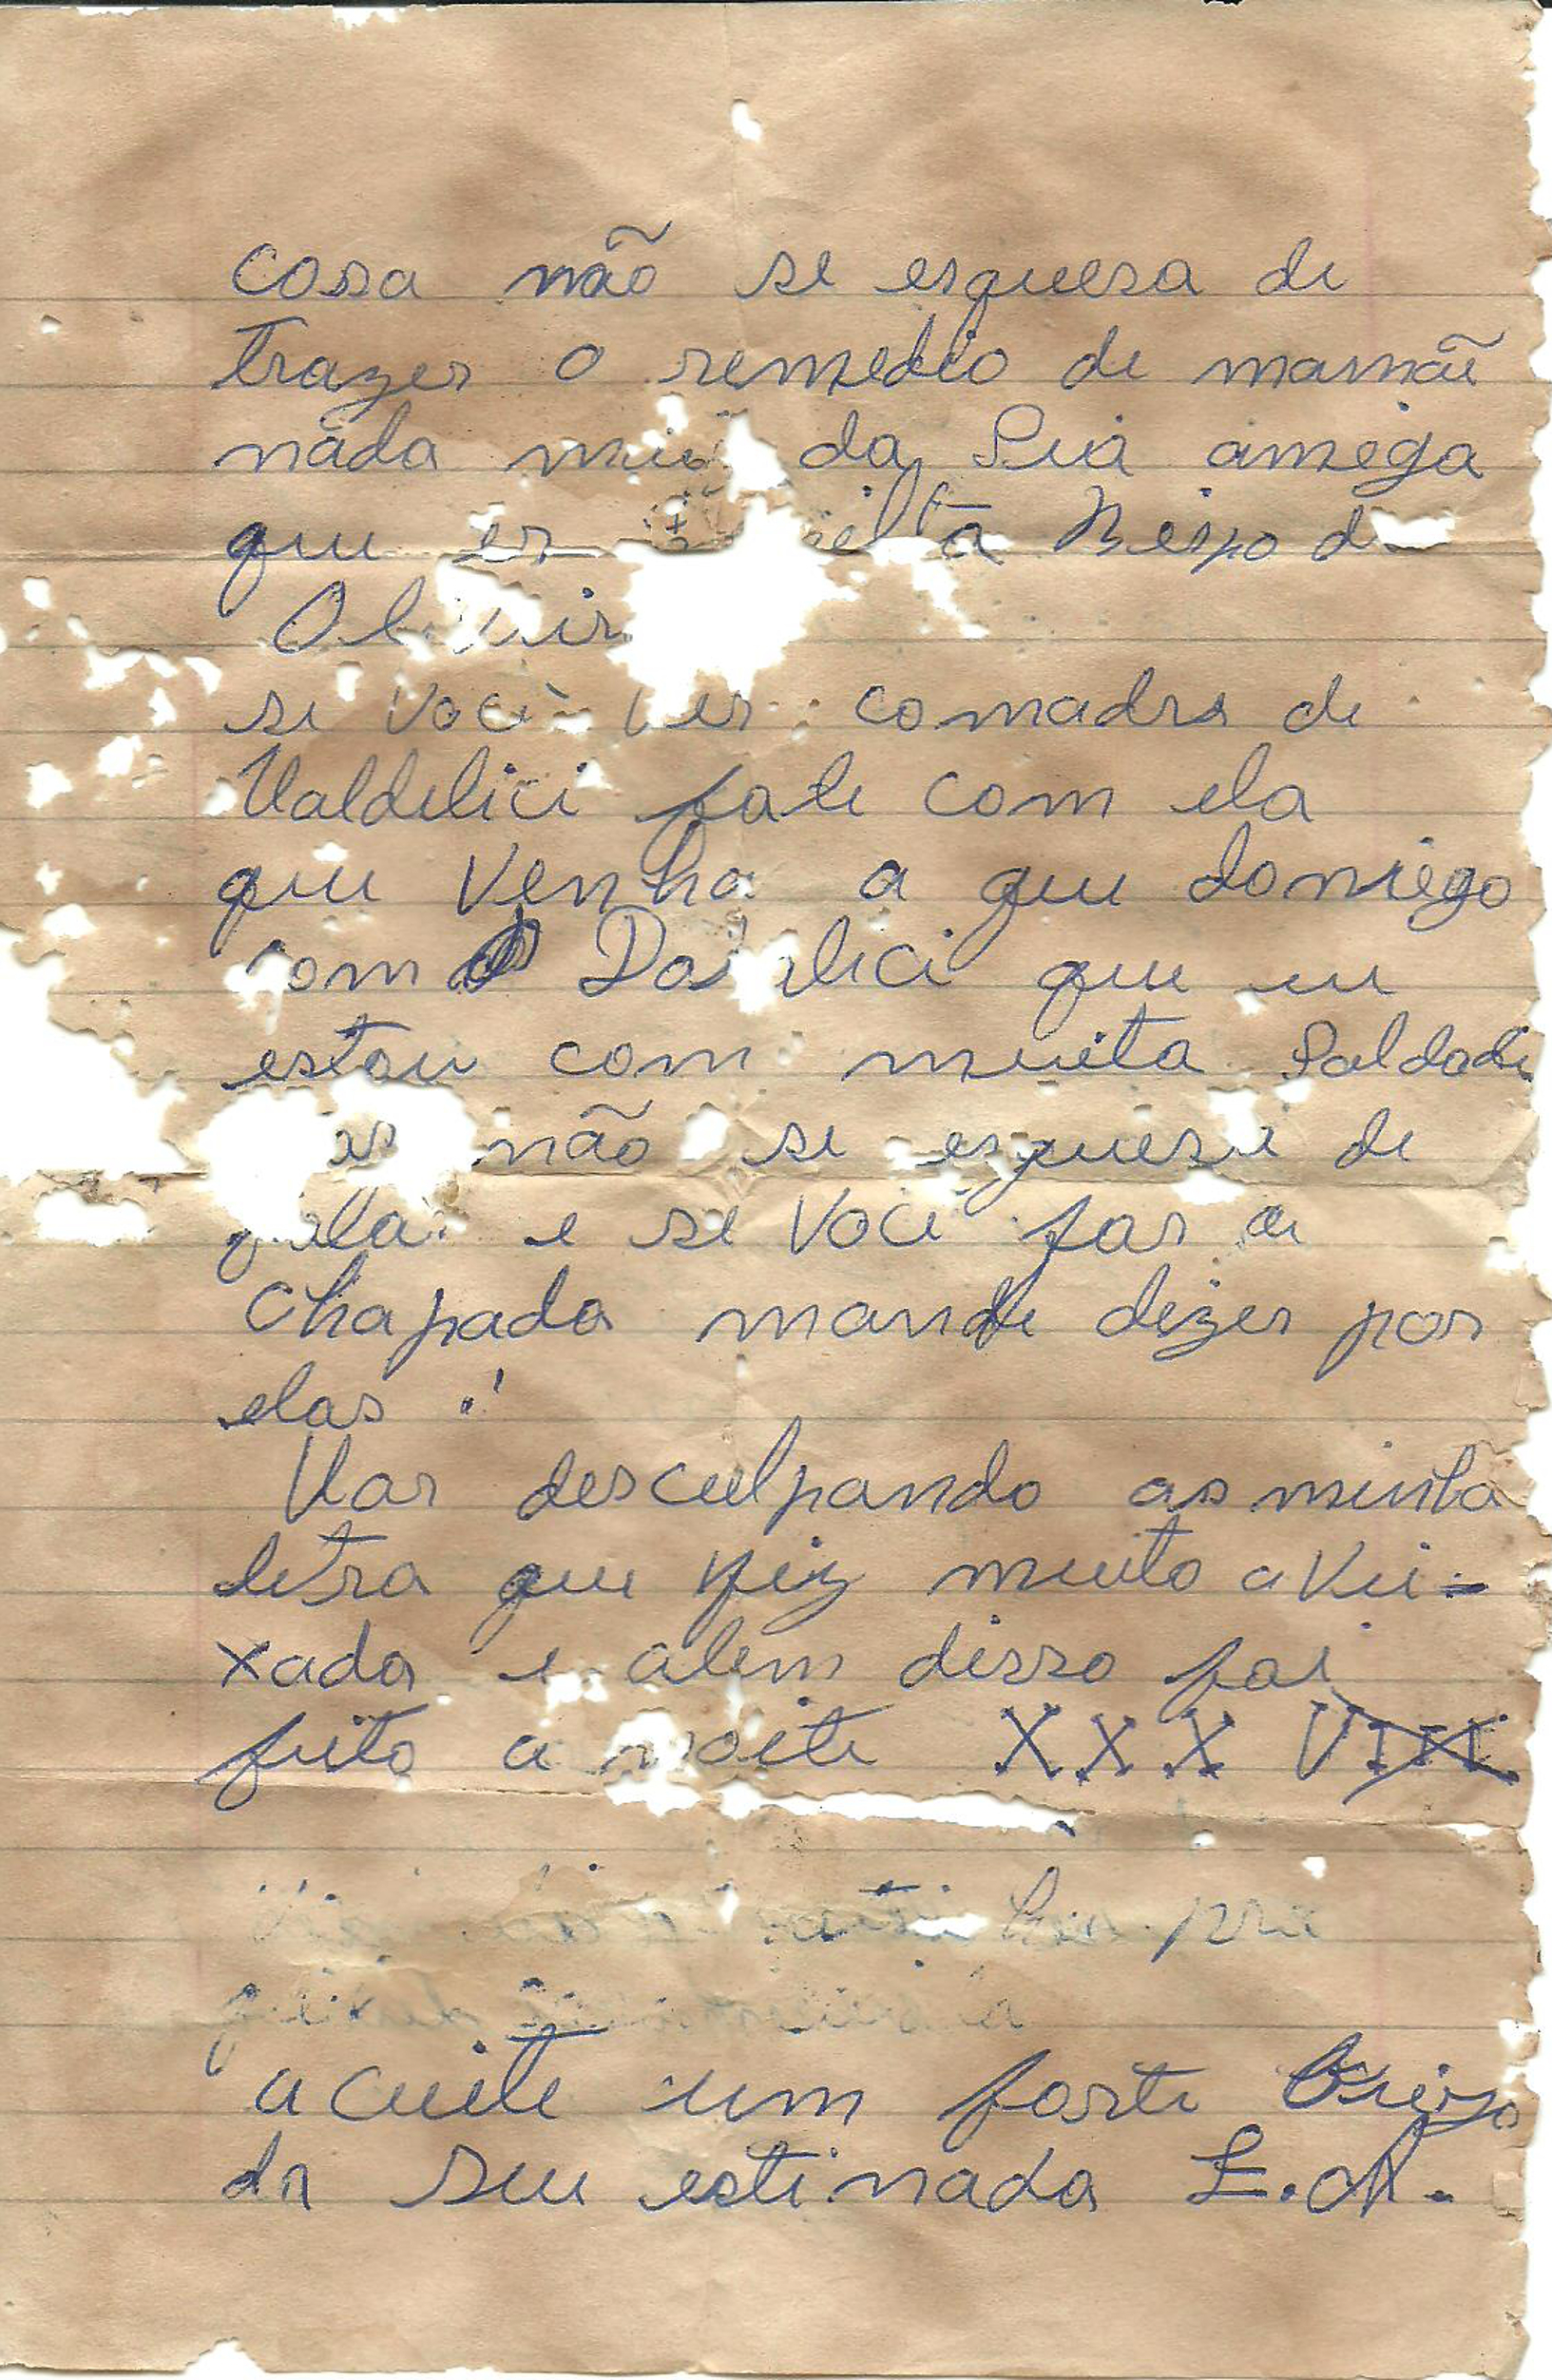 cosa não se esquesa de
trazer o remedio de mamãe
nada da Sua amiga
que er Bispo d
se você ver comadre de
Valdelici fale com ela
que venha a qui domigo
com que eu
estou com muita Saldade
não se esquesa de
e se você for a
Chapada mande dizer por
elas
Vai desculpando as minha
letra que fiz muito a vei=
xada e alem disso foi
feito a noite XXX VIII
aceite um forte
da sua estimada E.A.